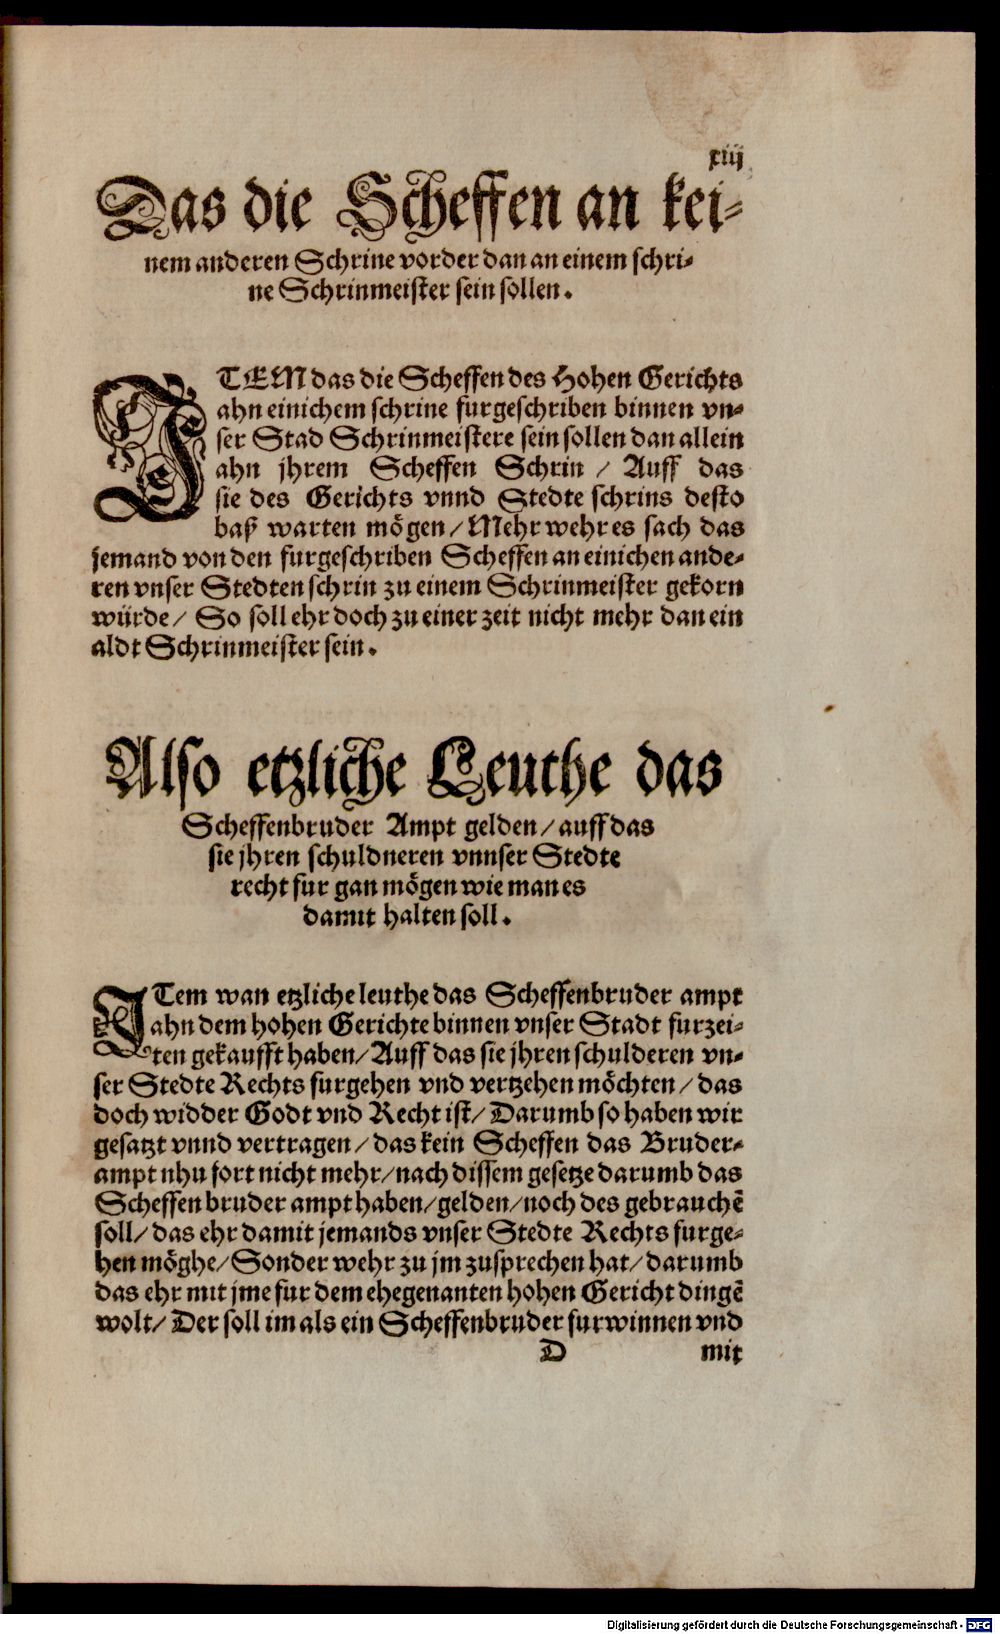 xiij
Das die Scheffen an kei-
nem anderen Schrine vorder dan an einem schri-
ne Schrinmeister sein sollen.
ITEM das die Scheffen des Hohen Gerichts
ahn einichem schrine furgeschriben binnen vn-
ser Stad Schrinmeistere sein sollen dan allein
ahn jhrem Scheffen Schrin / Auff das
sie des Gerichts vnnd Stedte schrins desto
baß warten mögen / Mehr wehr es sach das
jemand von den furgeschriben Scheffen an einichen ande-
ren vnser Stedten schrin zu einem Schrinmeister gekorn
würde / So soll ehr doch zu einer zeit nicht mehr dan ein
aldt Schrinmeister sein.
Also etzliche Leuthe das
Scheffenbruder Ampt gelden / auff das
sie jhren schuldneren vnnser Stedte
recht fur gan mögen wie man es
damit halten soll.
ITem wan etzliche leuthe das Scheffenbruder ampt
ahn dem hohen Gerichte binnen vnser Stadt furzei-
ten gekaufft haben / Auff das sie jhren schulderen vn-
ser Stedte Rechts furgehen vnd vertzehen möchten / das
doch widder Godt vnd Recht ist / Darumb so haben wir
gesatzt vnnd vertragen / das kein Scheffen das Bruder-
ampt nhu fort nicht mehr / nach dissem gesetze darumb das
Scheffen bruder ampt haben / gelden / noch des gebrauchē
soll / das ehr damit jemands vnser Stedte Rechts furge-
hen möghe / Sonder wehr zu jm zusprechen hat / darumb
das ehr mit jme fur dem ehegenanten hohen Gericht dingē
wolt / Der soll im als ein Scheffenbruder furwinnen vnd
D mit
Digitalisierung gefördert durch die Deutsche Forschungsgemeinschaft - DFG